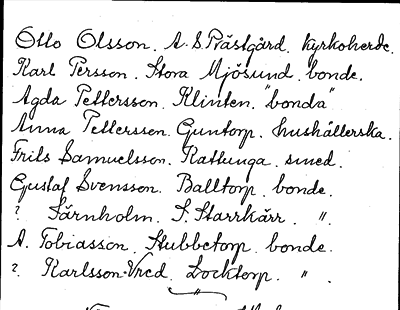 Otto Olsson. A. S. Prästgård. kyrkoherde.
Karl Persson. Stora Mjösund. bonde.
Agda Pettersson. Klinten. "bonda"
Anna Pettersson. Guntorp. hushållerska.
Frils Samuelsson. Rattunga. smed.
Gustaf Svensson. Balltorp. bonde.
? Särnholm. S. Starrkärr. ".
A. Tobiasson. Stubbetorp. bonde.
? Karlsson-Vred. Locktorp. ".